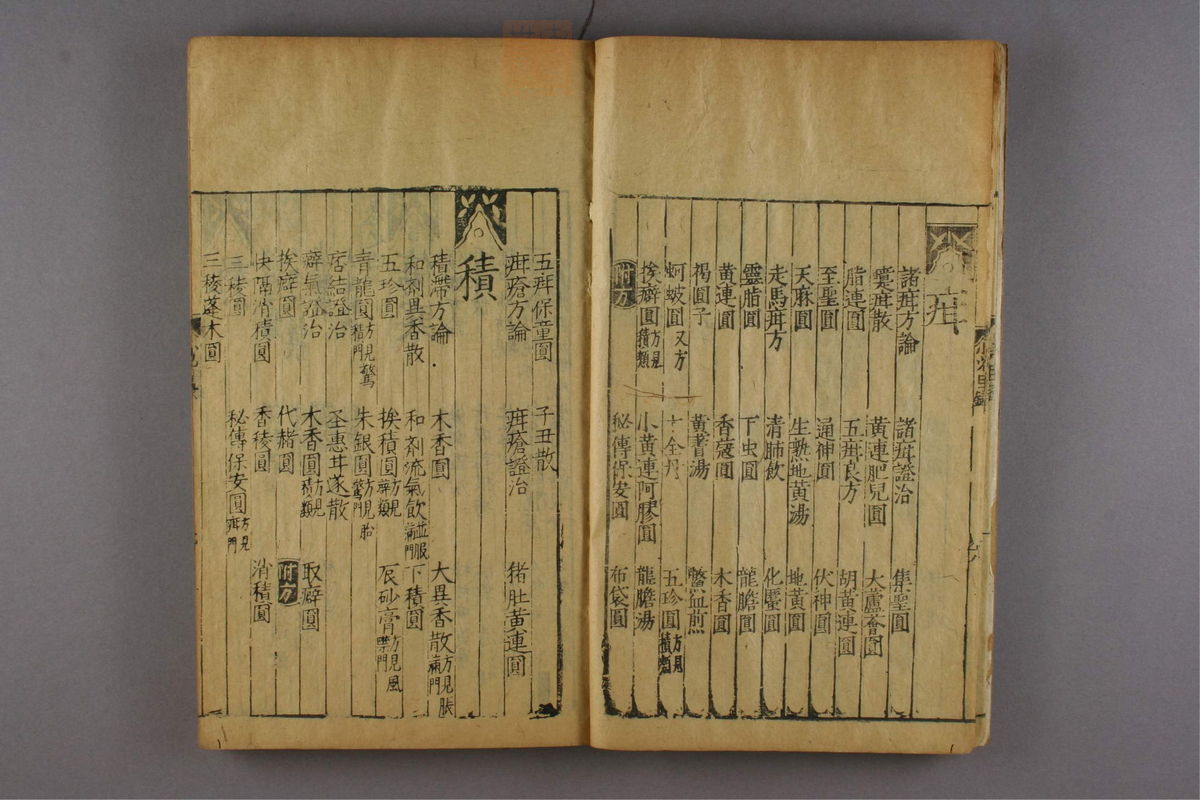 疳
諸疳方論 諸疳證治 集聖圓
蠹疳散 黃連肥兒圓 大蘆薈圓
脂連圓 五疳良方 胡黃連圓
至聖圓 通神圓 伏神圓
天麻圓 生熟地黃湯 地黃圓
走馬疳方 清肺飲 化䘌圓
靈脂圓 下虫圓 龍膽圓
黃連圓 香蔻圓 木香圓
褐圓子 黃蓍湯 鱉血煎
蚵蚾圓又方 十全丹 五珍圓方見積類
挨癖圓方見積類 小黃連阿膠圓 龍膽湯
附方 秘傳保安圓 布袋圓
五疳保童圓 子丑散
疳瘡方論 疳瘡證治 猪肚黃連圓
積
積滯方論 木香圓 大異香散方見脹滿門
和劑異香散 和劑流氣飲並脹滿門 下積圓
五珍圓 挨積圓方見癖類 辰砂膏方見風噤門
青龍圓方見驚癇門 朱銀圓方見胎驚門
痞結證治 聖惠甘遂散
癖氣證治 木香圓方見積類 取癖圓
挨癖圓 代赭圓 附方
快膈消積圓 香稜圓 消積圓
三稜圓 秘傳保安圓方見疳門
三稜蓬木圓